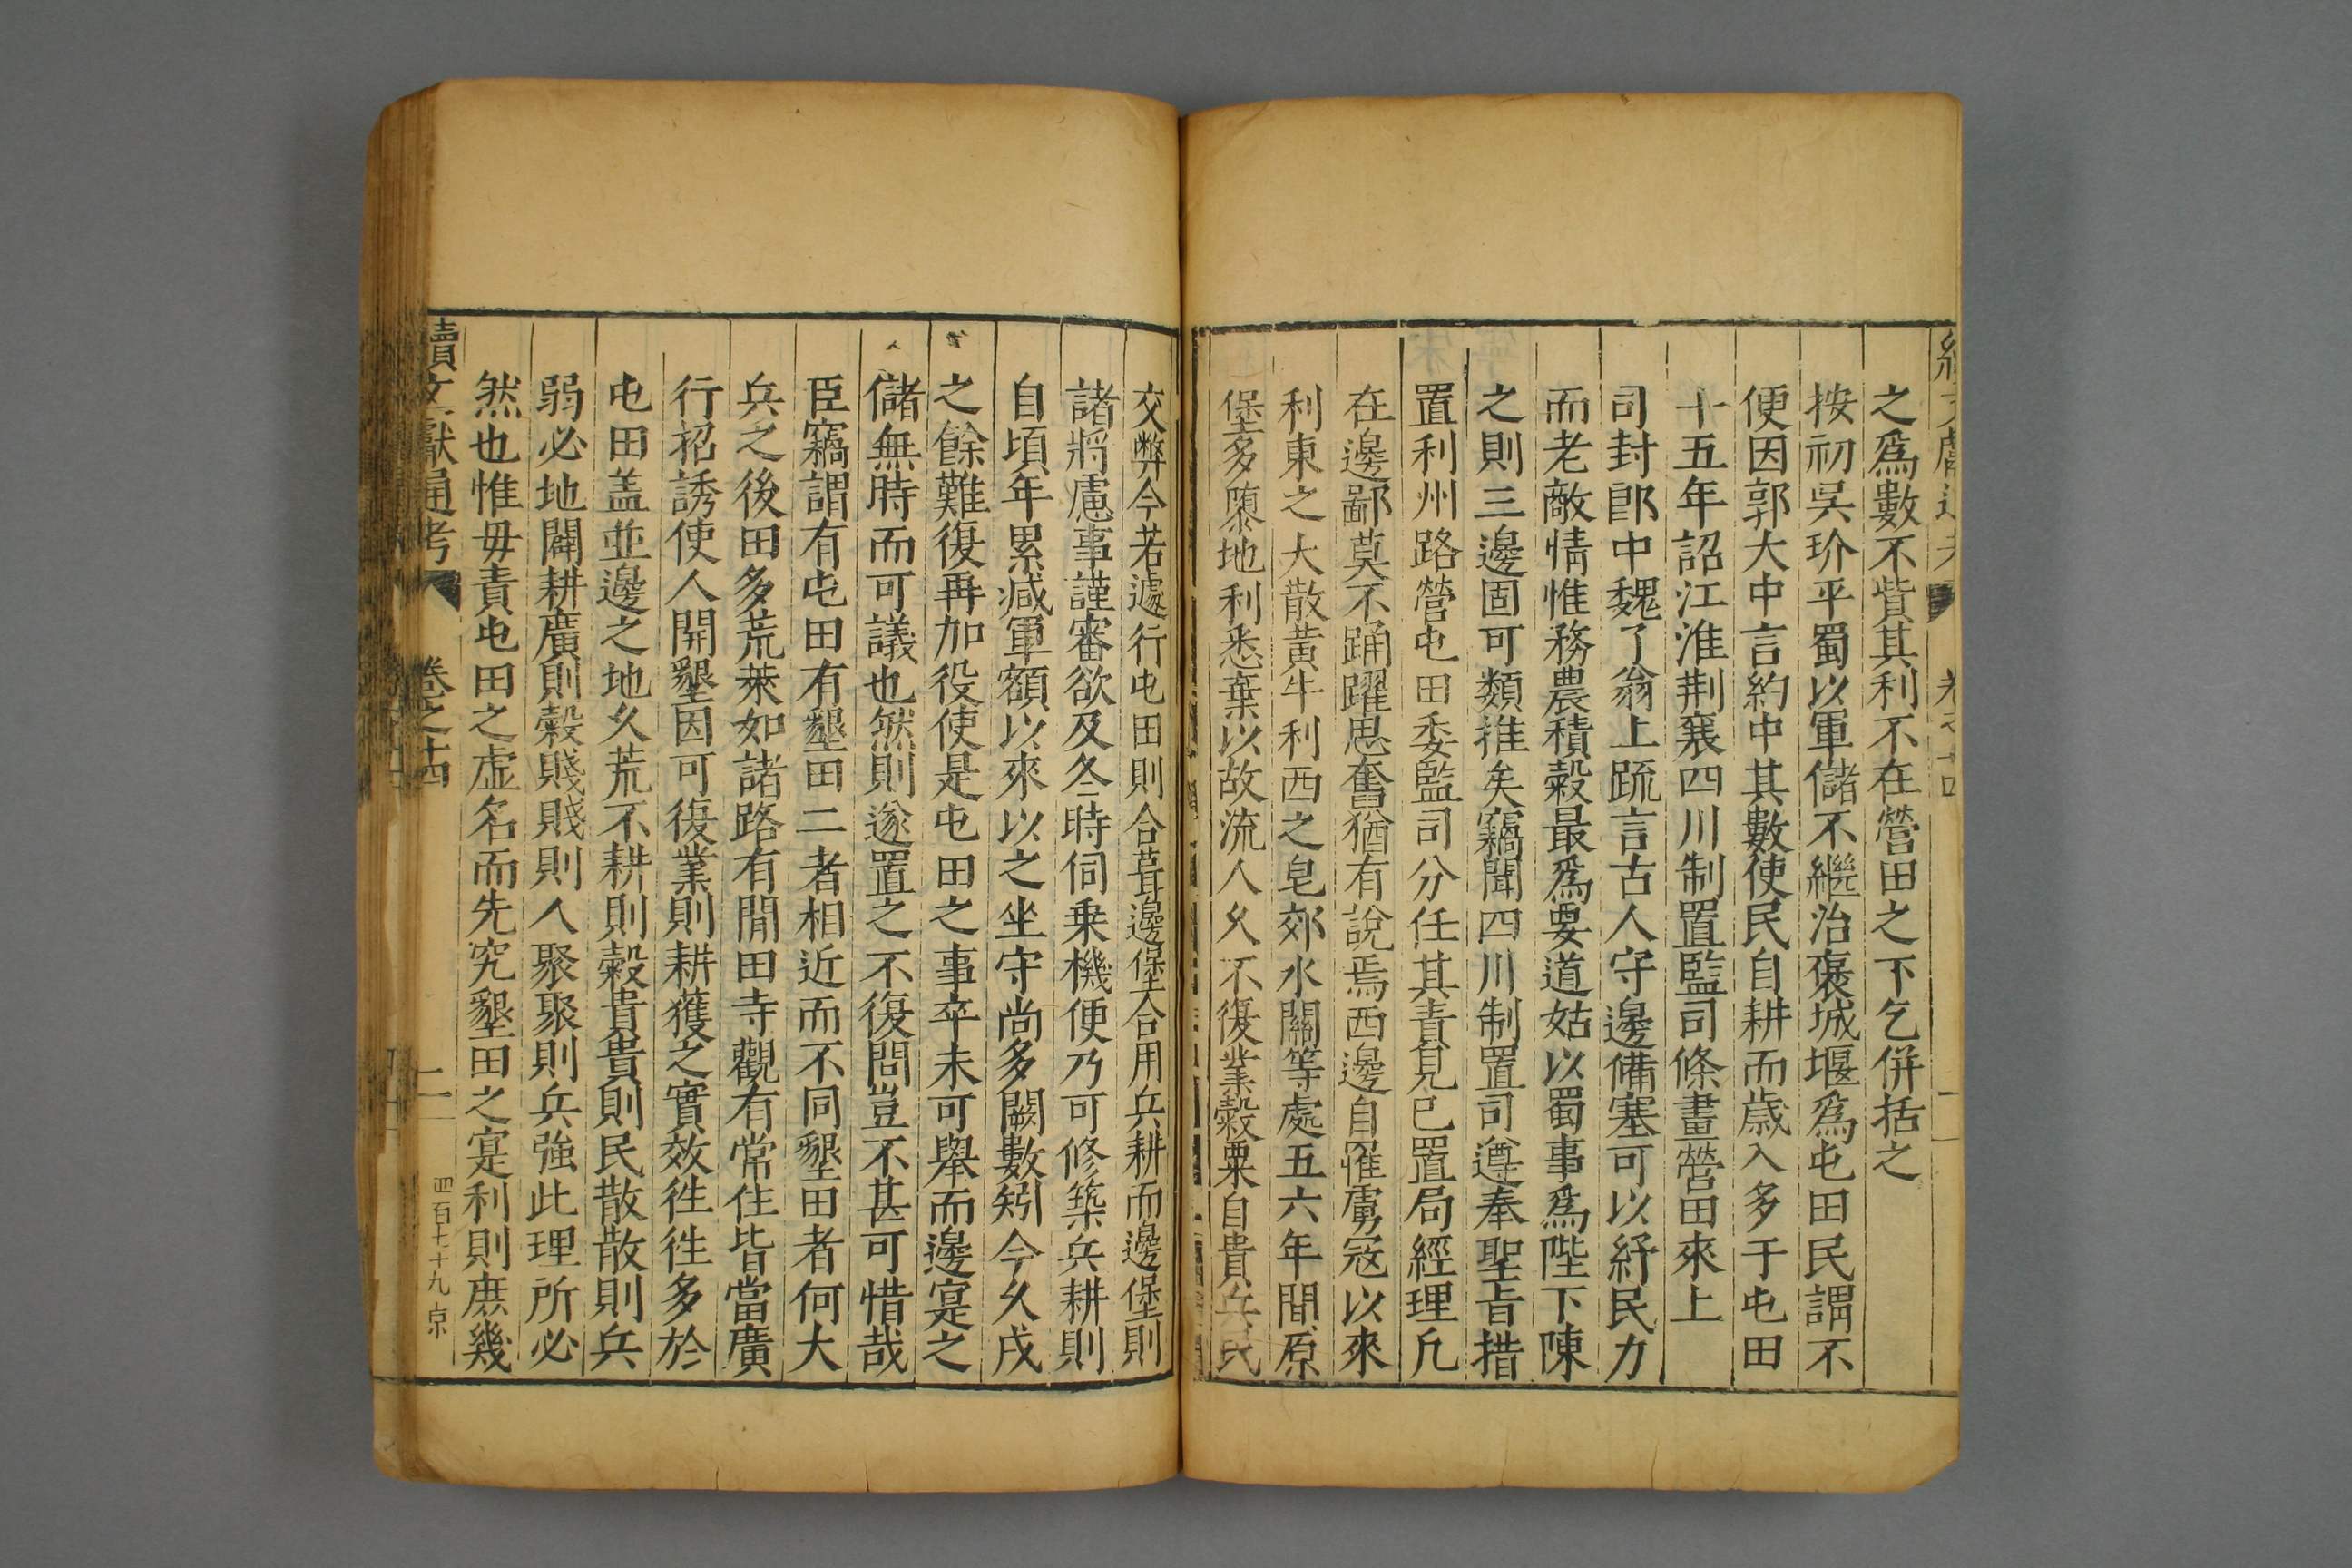 之爲數不貲其利不在營田之下乞併括之
按初吳玠平蜀以軍儲不繼治褒城堰爲屯田民謂不
便因郭大中言約中其數使民自耕而歲入多于屯田
十五年詔江淮荆襄四川制置監司條畫營田來上
司封郎中魏了翁上疏言古人守邊備塞可以紓民力
而老敵情惟務農積榖最爲要道姑以蜀事爲陛下陳
之則三邊固可類推矣竊聞四川制置司遵奉聖旨措
置利州路營屯田委監司分任其責見已置局經理凡
在邊鄙莫不踊躍思奮猶有說焉西邊自罹虜寇以來
利東之大散黃牛利西之皂郊水關等處五六年間原
堡多隳地利悉棄以故流人久不復業榖粟自貴兵民
交弊今若遽行屯田則合葺邊堡合用兵耕而邊堡則
諸將慮事謹審欲及冬時伺乗機便乃可修築兵耕則
自頃年累减軍額以來以之坐守尚多闕數矧今久戍
之餘難復再加役使是屯田之事卒未可舉而邊寔之
儲無時而可議也然則遂置之不復問豈不甚可惜哉
臣竊謂有屯田有墾田二者相近而不同墾田者何大
兵之後田多荒萊如諸路有閒田寺觀有常住皆當廣
行招誘使人開墾因可復業則耕獲之實效徃徃多於
屯田盖並邊之地久荒不耕則榖貴貴則民散散則兵
弱必地闢耕廣則榖賤賤則人聚聚則兵強此理所必
然也惟毋責屯田之虛名而先究墾田之寔利則庶幾
續文獻通考 卷之十四 二 四百七十九 京